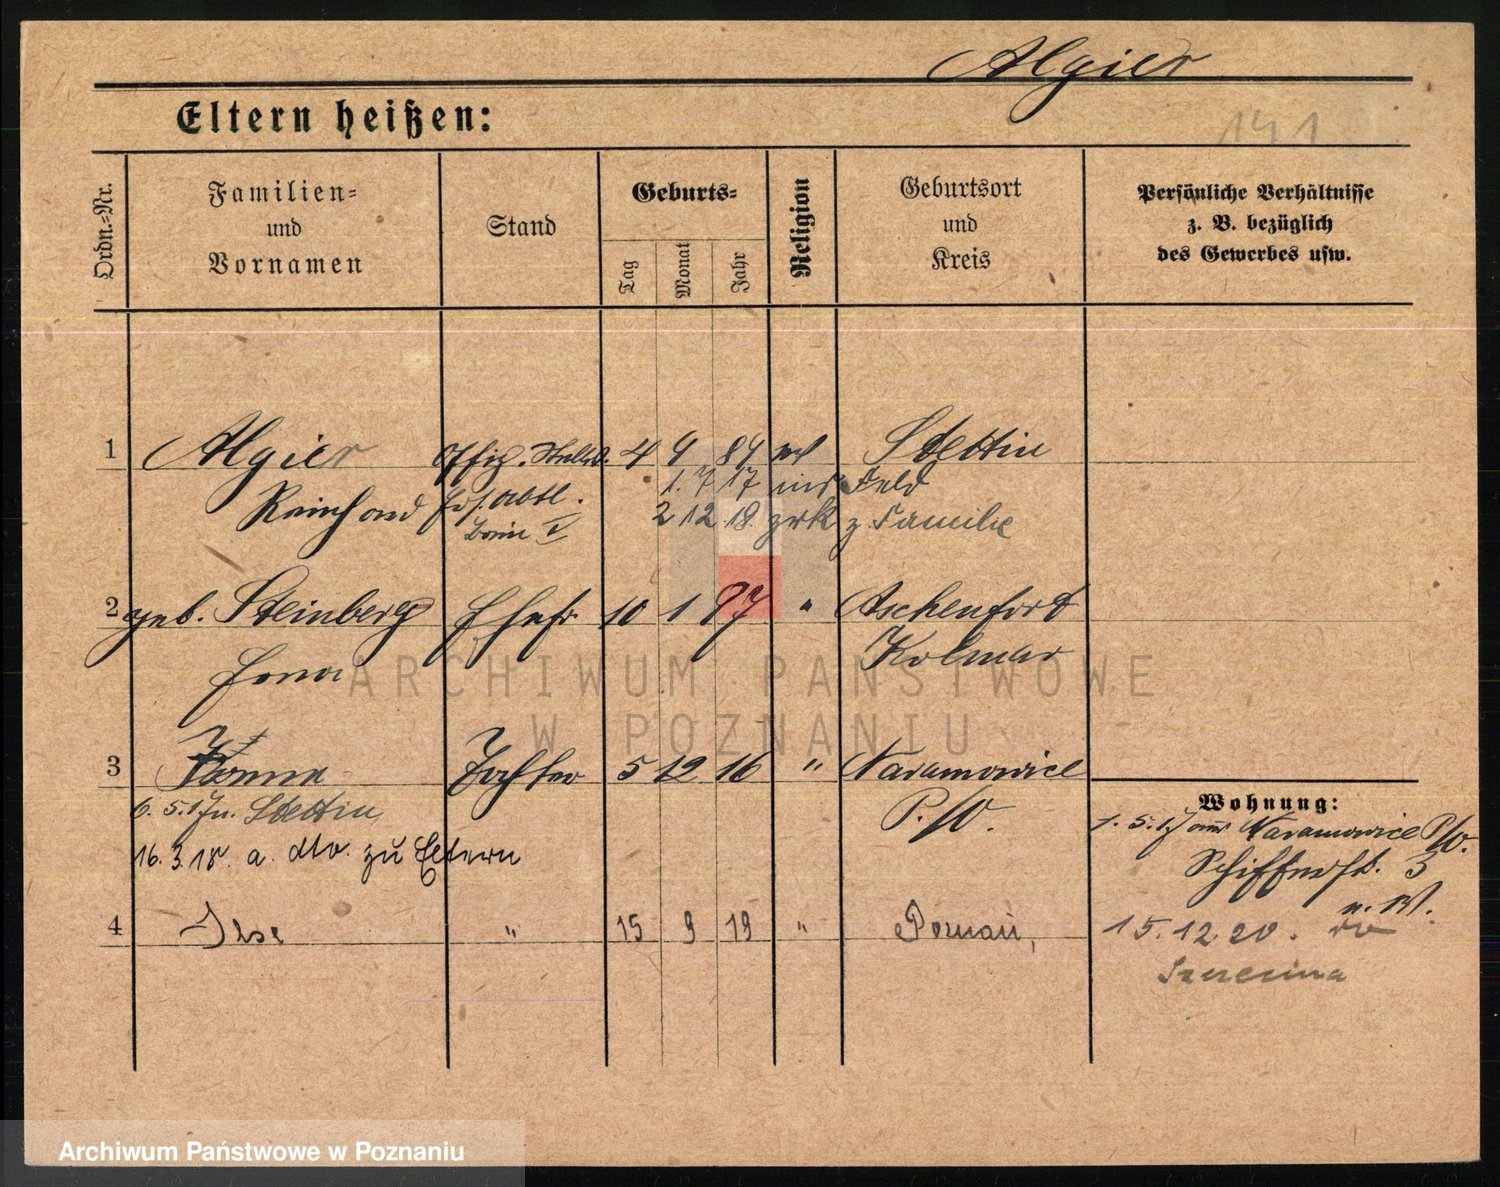 Algier
Eltern heißen:
141
Ordn.-Nr.
Familien-
und
Vornamen
Stand
Geburts-
Tag
Monat
Jahr
Religion
Geburtsort
und
Kreis
Persönliche Verhältnisse
z. B. bezüglich
des Gewerbes usw.
1 Algier Offiz. 4 9 89 Stettin
Reinhard 1. 7 17 ins Feld
2 12 18 zrk z. Familie
2 geb. Steinberg Ehefr 10 1 97 " Aschenfort
Kolmar
ARCHIWUM PAŃSTWOWE
W POZNANIU
3 Tochter 5 12 16 " Naramowice
P./O.
6. 5. 17 n. Stettin
16. 3. 18. a. dto. zu Eltern
Wohnung:
1. 5. 17 aus Naramowice P/O.
Schifferstr. 3
4 Ilse " 15 9 19 " Poznań,
15. 12. 20. do
Szczecina
Archiwum Państwowe w Poznaniu